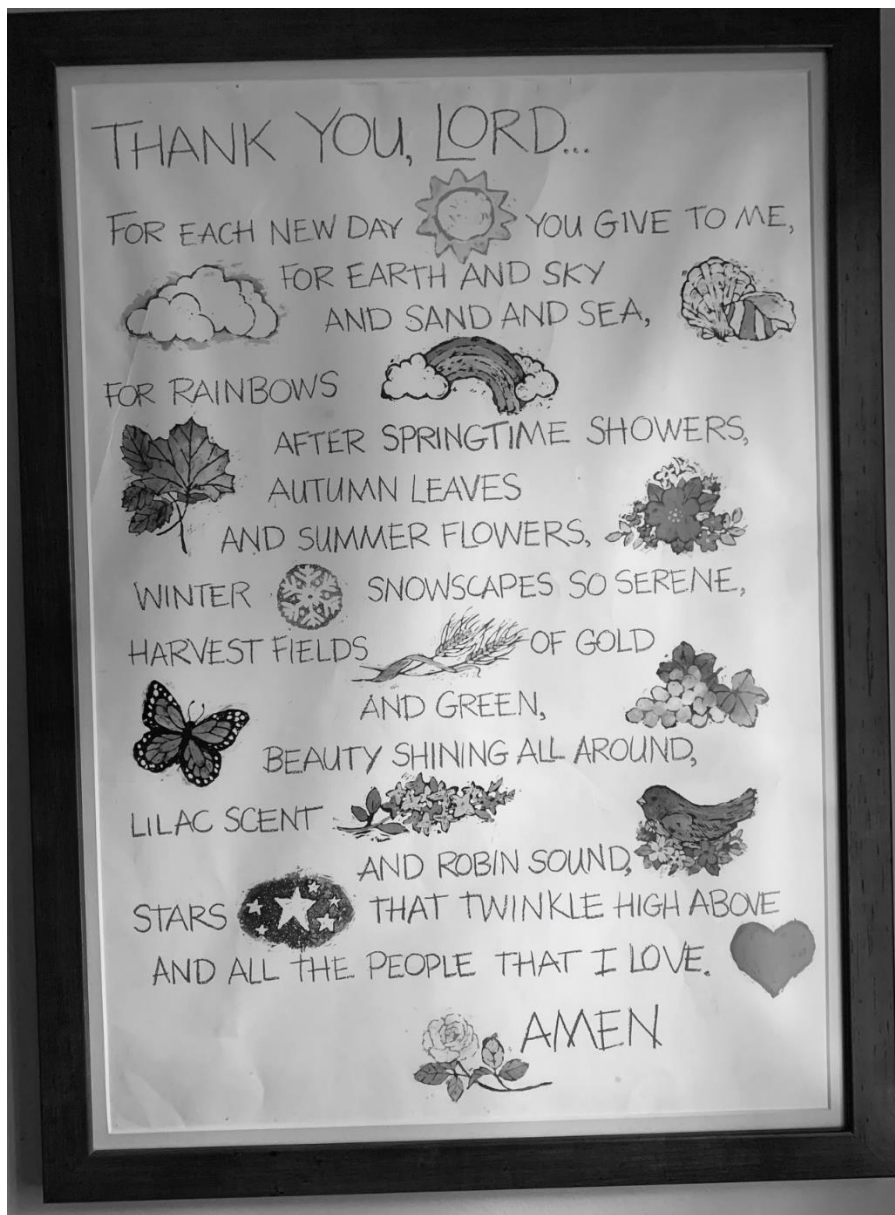 THANK YOU, LORD...
FOR EACH NEW DAY YOU GIVE TO ME,
FOR EARTH AND SKY
AND SAND AND SEA,
FOR RAINBOWS
AFTER SPRINGTIME SHOWERS,
AUTUMN LEAVES
AND SUMMER FLOWERS,
WINTER SNOWSCAPES SO SERENE,
HARVEST FIELDS OF GOLD
AND GREEN,
BEAUTY SHINING ALL AROUND,
LILAC SCENT
AND ROBIN SOUND,
STARS THAT TWINKLE HIGH ABOVE
AND ALL THE PEOPLE THAT I LOVE.
AMEN